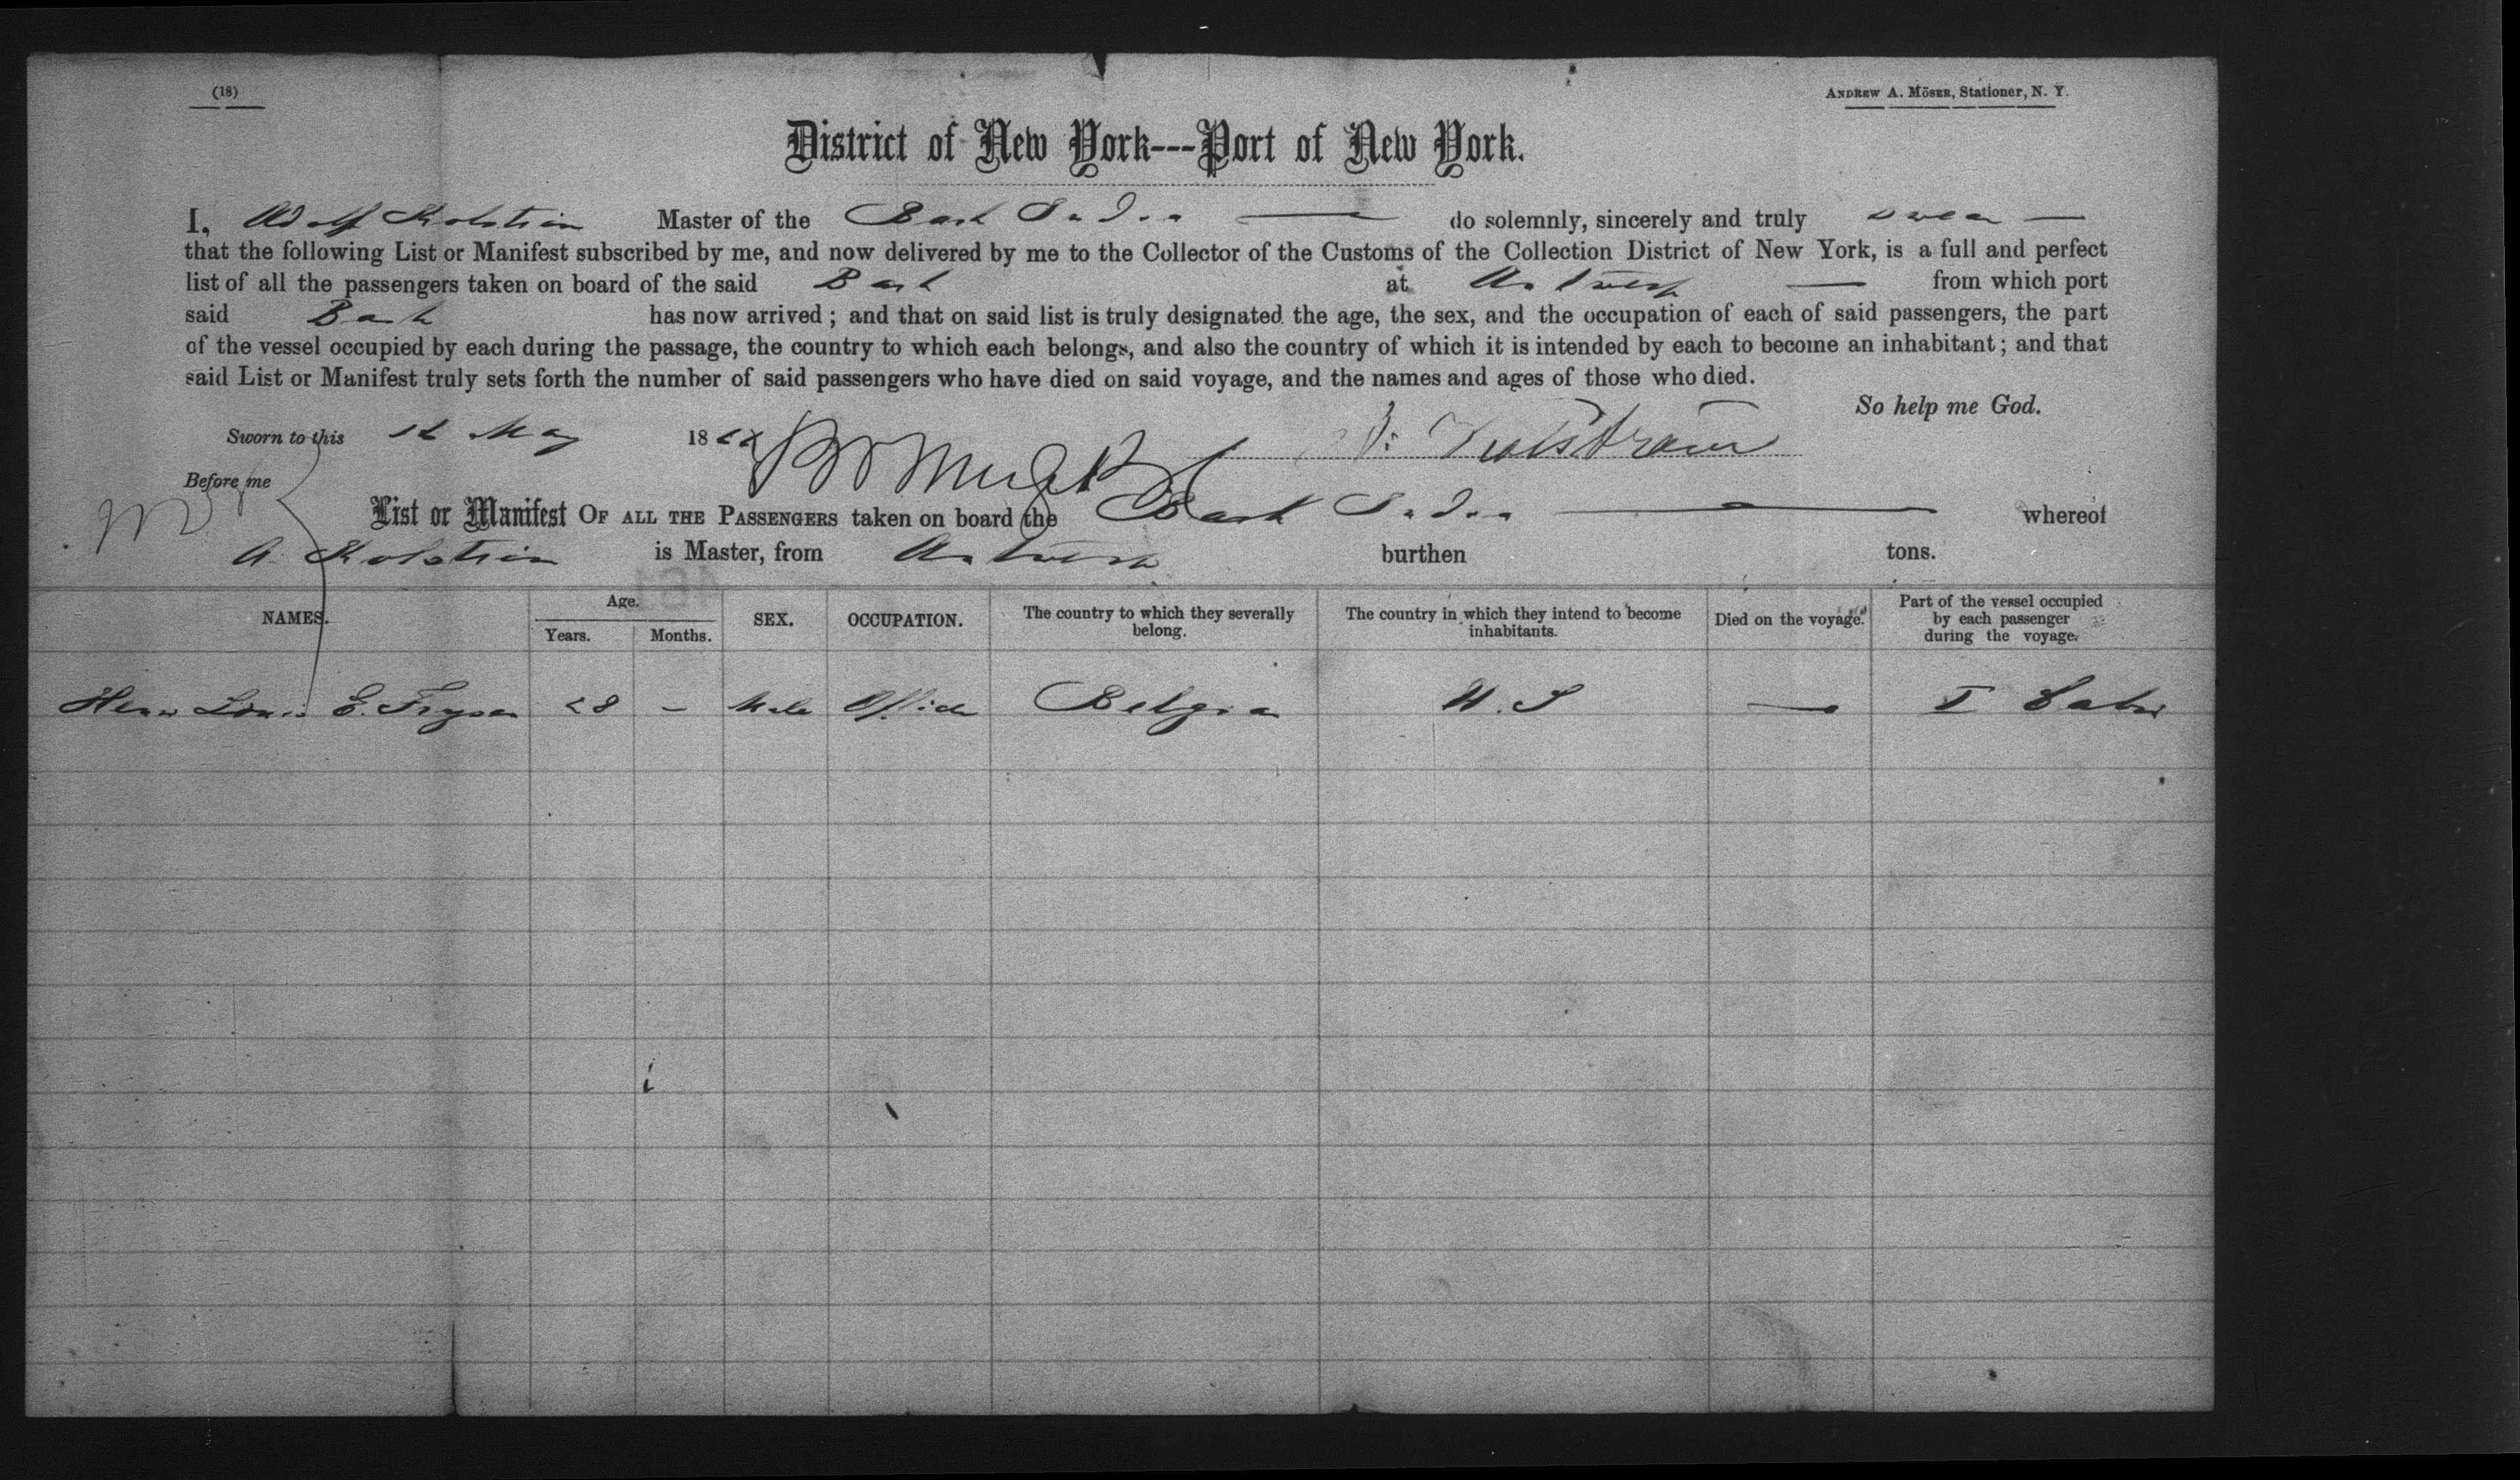 (18)
ANDREW A. MÖSER, Stationer, N. Y.
District of New York---Port of New York.
I, Adolf Master of the Bark do solemnly, sincerely and truly swear
that the following List or Manifest subscribed by me, and now delivered by me to the Collector of the Customs of the Collection District of New York, is a full and perfect
list of all the passengers taken on board of the said Bark at Antwerp from which port
said Bark has now arrived; and that on said list is truly designated the age, the sex, and the occupation of each of said passengers, the part
of the vessel occupied by each during the passage, the country to which each belongs, and also the country of which it is intended by each to become an inhabitant; and that
said List or Manifest truly sets forth the number of said passengers who have died on said voyage, and the names and ages of those who died.
So help me God.
Sworn to this May 18
Before me
List or Manifest OF ALL THE PASSENGERS taken on board the Bark whereof
A. is Master, from Antwerp burthen tons.
NAMES. Age. Years. Months. SEX. OCCUPATION. The country to which they severally belong. The country in which they intend to become inhabitants. Died on the voyage. Part of the vessel occupied by each passenger during the voyage.
Louis E. 28 - Male Belgia U. S —